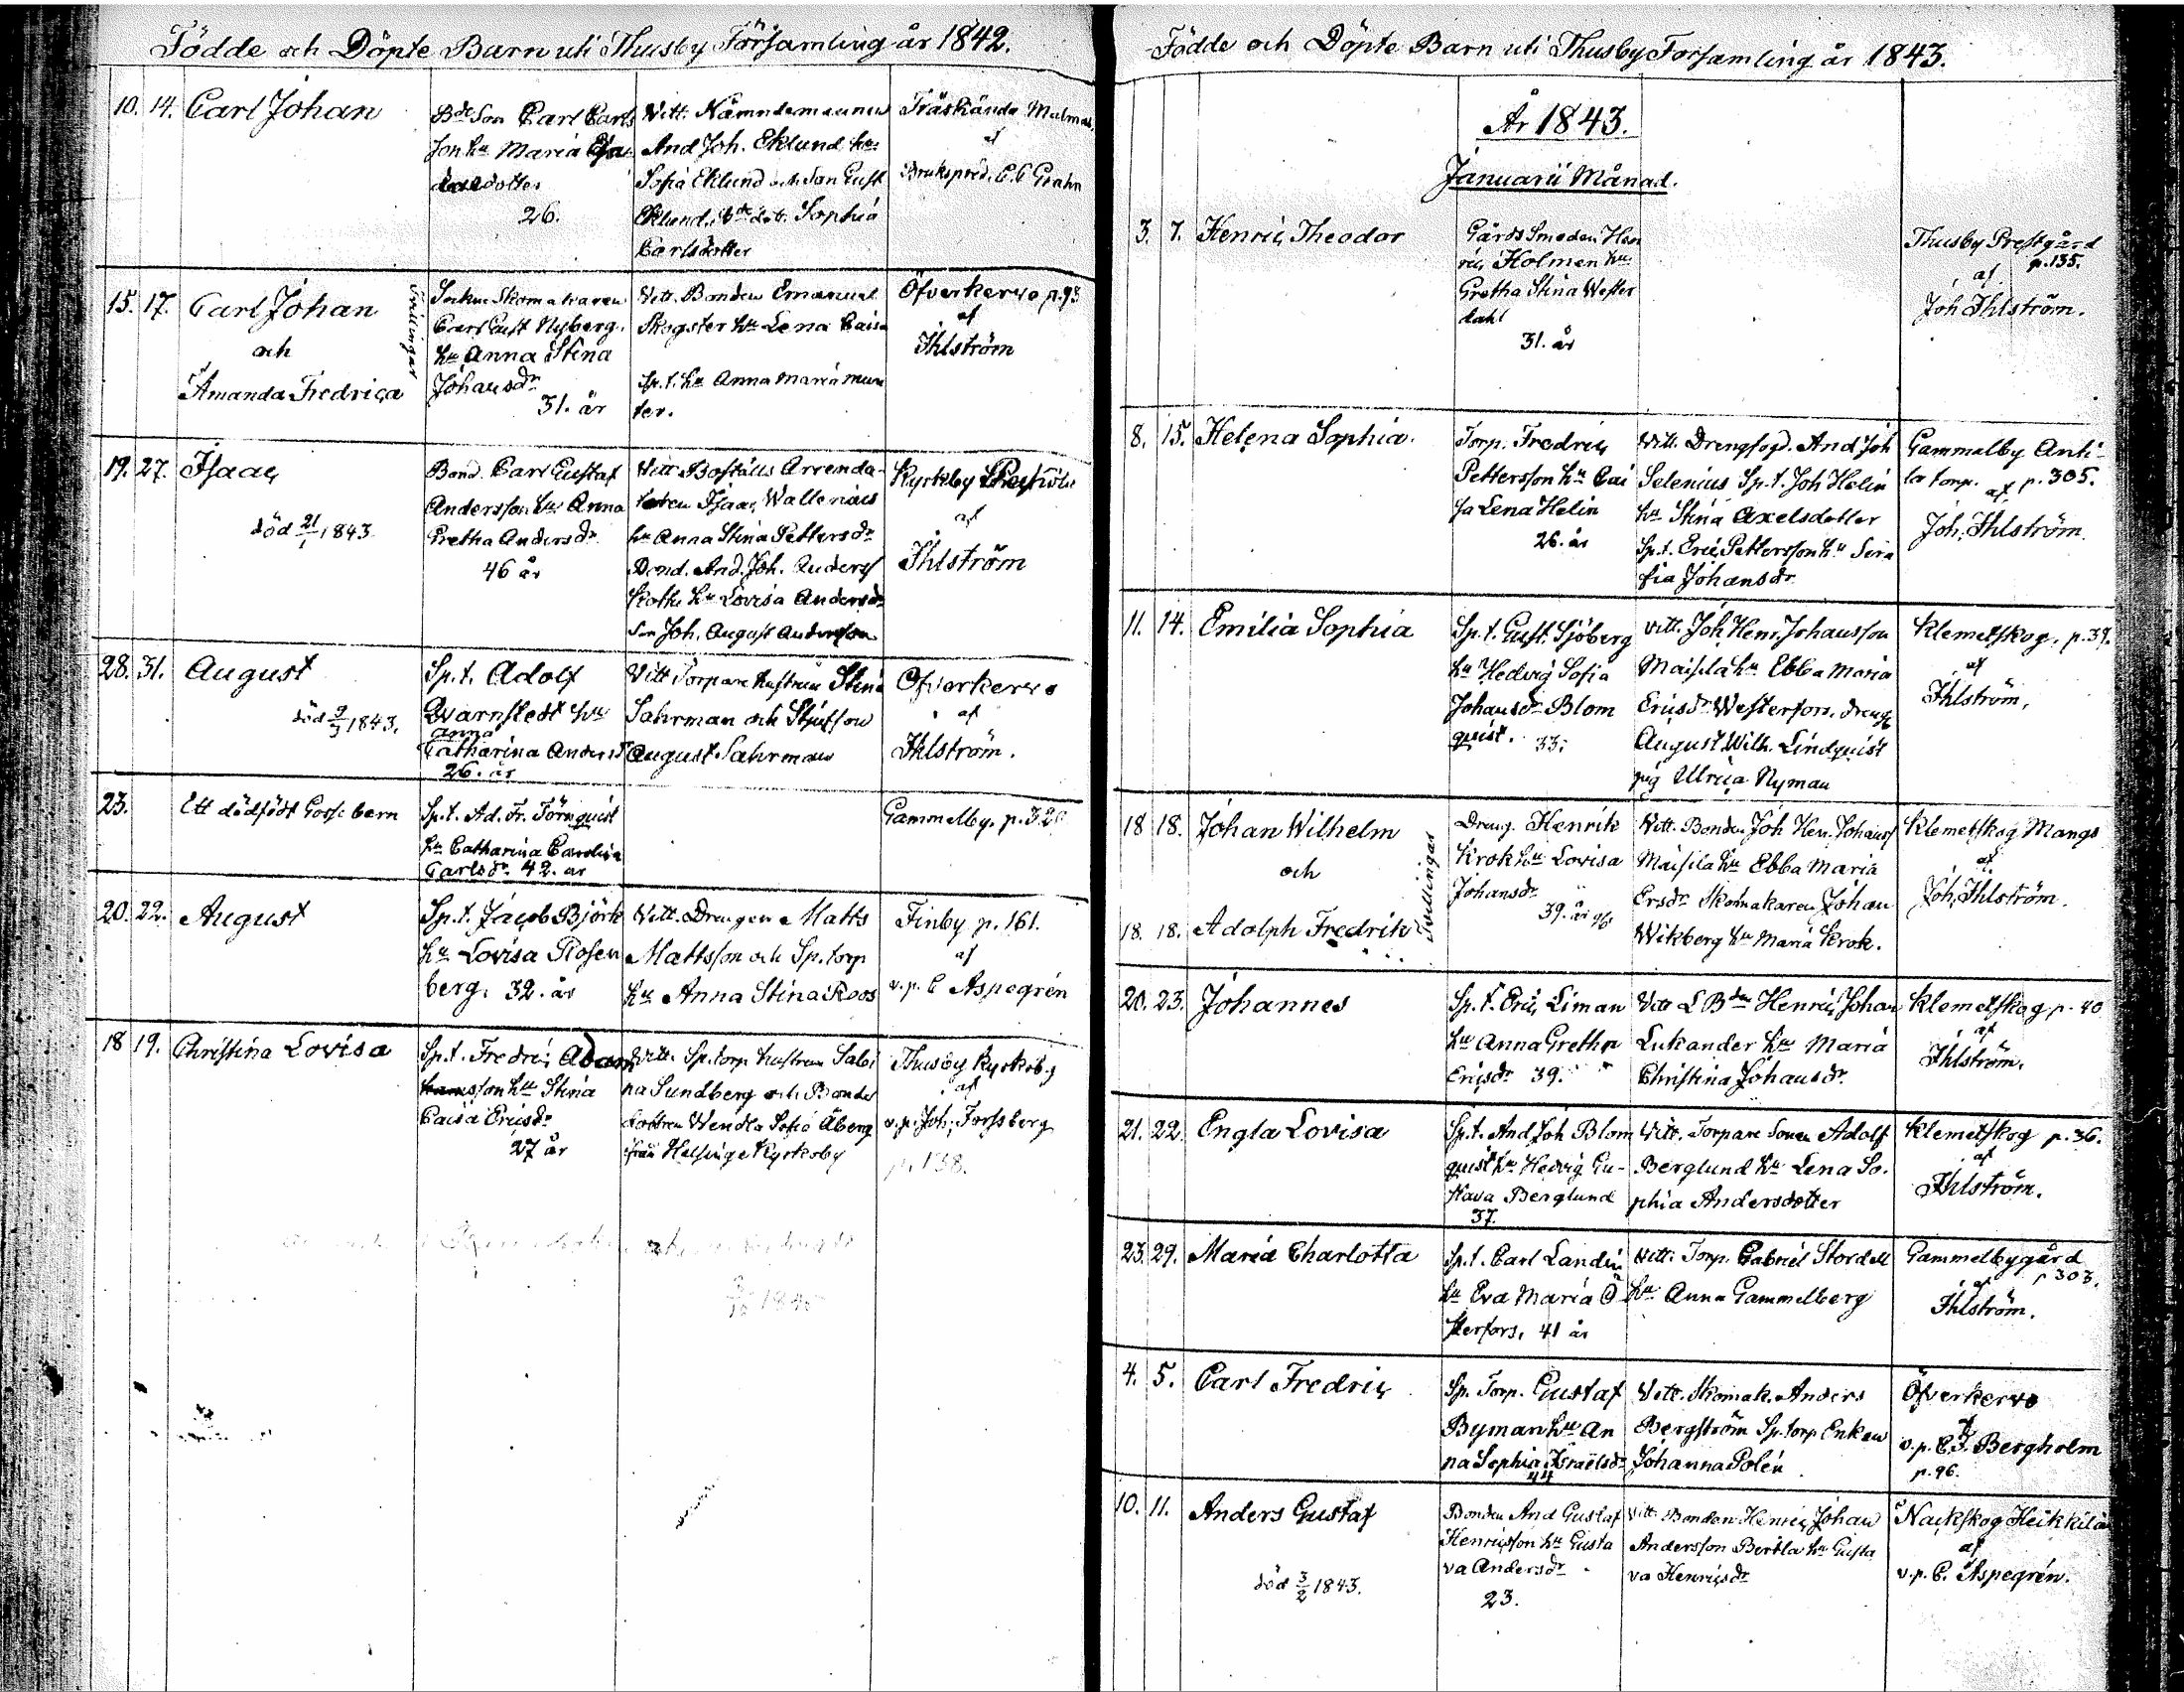 Födde och Döpte Barn uti Thusby Församling år 1842.
10. 14. Carl Johan
Bde Son Carl Carls
son hu Maria
dotter
26.
Vitt. Nämndemannen
And Joh. Eklund hu
Sofia Eklund och Son Gust
Eklund, Sophia
Carlsdotter
Träskända Malmas.
af
Brukspred. C. C Grahn
15. 17. Carl Johan
och
Amanda Fredrica
Tvillingar
Sockne Skomakaren
Carl Gust Nyberg.
hu Anna Stina
Johansdr
31. år
Vitt. Bonden Emanuel
Skogster hu Lena Caisa
Sp. t. hu Anna Maria Mun
ter.
Öfverkervo p. 93
af
Ihlström
19. 27. Isaac
död 21/1 1843.
Bond. Carl Gustaf
Andersson hu Anna
Gretha Andersdr
46 år
Vitt Boställs Arrenda-
toren Isaac Wallenius
hu Anna Stina Pettersdr
Bond. And. Joh. Anders
hu Lovisa Andersdr
Son Joh. August Andersson
Kyrkby
af
Ihlström
28. 31. August
död 9/3 1843.
Sp. t. Adolf
Qvarnstedt hu
Anna
Catharina Andersd
26. år
Vitt Torpare hustrun Stina
Sahrman och Styfson
August Sahrman
Öfverkervo
af
Ihlström.
23. Ett dödfödt Gosse barn
Sp. t. Ad. Fr. Törnquist
hu Catharina Carolina
Carlsdr 42. år
Gammelby. p. 320
20. 22. August
Sp. t. Jacob Björk
hu Lovisa Rosen
berg. 32. år
Vitt. Drengen Matts
Mattsson och Sp. torp
hu Anna Stina Roos
Finby p. 161.
af
v. p. C Aspegrén
18 19. Christina Lovisa
Sp. t. Fredric Adam
sson hu Stina
Caisa Ericsdr
27 år
Vitt. Sp. torp hustrun Sabi
na Sundberg och Bonde
dottren Wendla Sofia Åberg
från Helsinge Kyrkoby
Thusby Kyrkoby
af
v. p. Joh. Forssberg
p. 138.
Födde och Döpte Barn uti Thusby Församling år 1843.
År 1843.
Januarii Månad.
3. 7. Henric Theodor
Gårds Smeden Hen
ric Holmen hu
Gretha Stina Wester
dahl
31. år
Thusby Prestgård
p. 135.
af
Joh Ihlström.
8. 15. Helena Sophia
Torp. Fredric
Pettersson hu Cai
sa Lena Helin
26. år
Vitt. Drengfogd. And Joh
Selenius Sp. t. Joh Helin
hu Stina Axelsdotter
Sp. t. Eric Pettersson hu Sera
fia Johansdr
Gammalby Anti-
la torp. p. 305.
af
Joh. Ihlström
11. 14. Emilia Sophia
Sp. t. Gust. Sjöberg
hu Hedvig Sofia
Johansdr Blom
quist. 33.
Vitt. Joh Henr. Johansson
Maisila hu Ebba Maria
Ericsdr Westerfors. Dreng
August Wilh. Lindquist
pig Ulrica Nyman
Klemetskog. p. 37.
af
Ihlström.
18 18. Johan Wilhelm
och
18. 18. Adolph Fredrik
Tvillingar
Dreng. Henrik
Krok hu Lovisa
Johansdr
39. år
Vitt. Bonden Joh Hen. Johanss
Maisila hu Ebba Maria
Ersdr Skomakaren Johan
Wikberg hu Maria Krok.
Klemetskog Mangs
af
Joh, Ihlström.
20. 23. Johannes
Sp. t. Eric Liman
hu Anna Gretha
Ericsdr 39.
Vitt L Bden Henric Johan
Lukander hu Maria
Christina Johansdr
Klemetskog p. 40
af
Ihlström.
21. 22 Engla Lovisa
Sp. t. And Joh Blom
quist hu Hedvig Gu-
stava Berglund
37.
Vitt. Torpare Sonen Adolf
Berglund hu Lena So.
phia Andersdotter
Klemetskog p. 36.
af
Ihlström.
23. 29. Maria Charlotta
Sp. t. Carl Landén
hu Eva Maria Ö
sterfors, 41 år
Vitt. Torp. Gabriel Stordell
hu Anna Gammelberg
Gammelbygård
p 303.
af
Ihlström.
4. 5. Carl Fredric
Sp. Torp. Gustaf
Byman hu An
na Sophia Israelsdr
44
Vitt. Skomak. Anders
Bergström Sp. torp Enkan
Johanna Polén
Öfverkervo
af
v. p. C. J. Bergholm
p. 96.
10. 11. Anders Gustaf
död 3/2 1843.
Bonden And Gustaf
Henricsson hu Gusta
va Andersdr
23.
Vitt. Bonden Henric Johan
Andersson Bertla hu Gusta
va Henricsdr
Nackskog Heikkilä
af
v. p. C. Aspegrén.